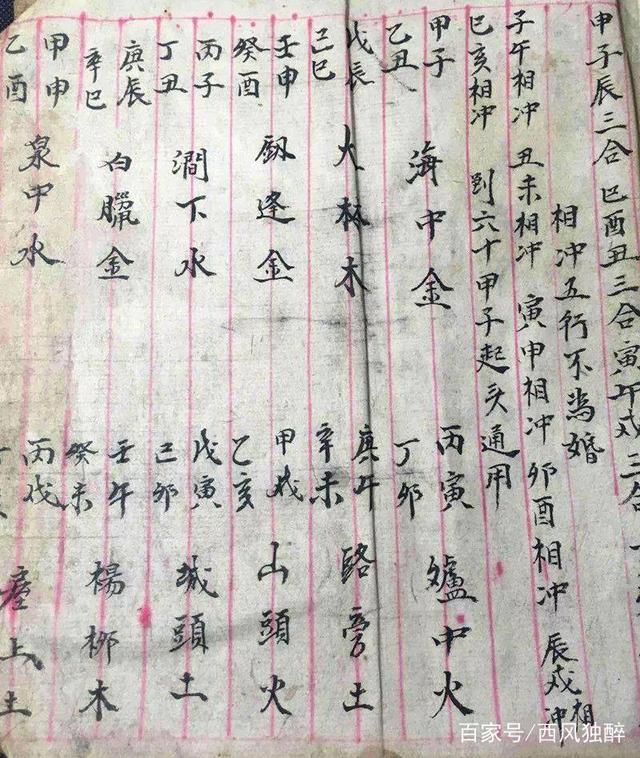 申子辰三合 巳酉丑三合 寅午戌三合
相冲五行不為婚
子午相冲 丑未相冲 寅申相冲 卯酉相冲 辰戌相冲
巳亥相冲 到六十甲子起头通用
甲子 乙丑 海中金 丙寅 丁卯 爐中火
戊辰 己巳 大林木 庚午 辛未 路旁土
壬申 癸酉 釼逢金 甲戌 乙亥 山頭火
丙子 丁丑 澗下水 戊寅 己卯 城頭土
庚辰 辛巳 白臘金 壬午 癸未 楊柳木
甲申 乙酉 泉中水 丙戌 上土
百家号/西风独醉